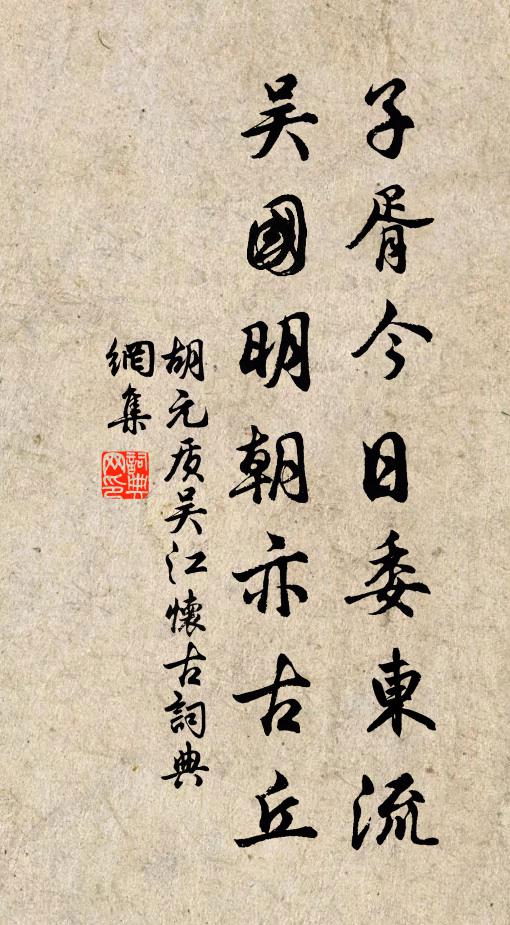 子胥今日委東流
吴國明朝亦古丘
胡元质吴江懷古詞典
網集
詞典網印